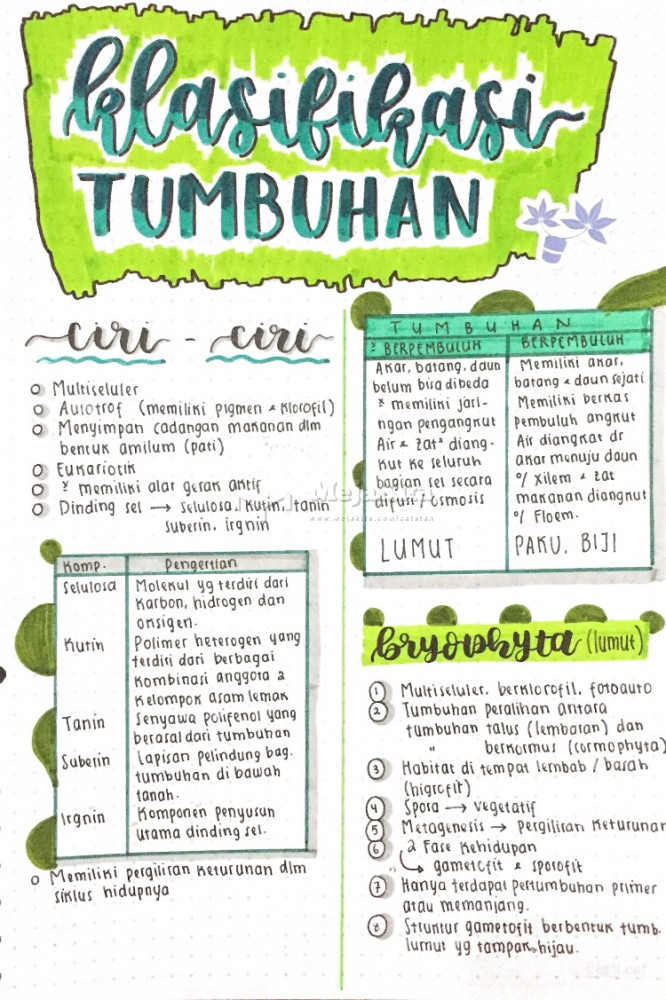 klasifikasi
TUMBUHAN
ciri - ciri
Multiseluler
Autotrof (memiliki pigmen & klorofil)
Menyimpan cadangan makanan dlm
bentuk amilum (pati)
Eukariotik
memiliki alat gerak aktif
Dinding sel → selulosa, kutin, tanin
suberin, irgnin
Komp. Pengertian
Selulosa Molekul yg terdiri dari
karbon, hidrogen dan
oksigen.
Kutin Polimer heterogen yang
terdiri dari berbagai
kombinasi anggota 2
kelompok asam lemak
Tanin Senyawa polifenol yang
berasal dari tumbuhan
Suberin Lapisan pelindung bag.
tumbuhan di bawah
tanah.
Irgnin Komponen penyusun
utama dinding sel.
Memiliki pergiliran keturunan dlm
siklus hidupnya
TUMBUHAN
BERPEMBULUH
Akar, batang, daun
belum bisa dibeda
memiliki jari-
ngan pengangkut
Air & zat² diang-
kut ke seluruh
bagian sel secara
difusi / osmosis
LUMUT
BERPEMBULUH
Memiliki akar,
batang & daun sejati
Memiliki berkas
pembuluh angkut
Air diangkat dr
akar menuju daun
o/ Xilem & zat
makanan diangkut
o/ Floem.
PAKU, BIJI
bryophyta (lumut)
1 Multiseluler, berklorofil, fotoauto
2 Tumbuhan peralihan antara
tumbuhan talus (lembaran) dan
" berkormus (cormophyta)
3 Habitat di tempat lembab / basah
(higrofit)
4 Spora → vegetatif
5 Metagenesis → Pergiliran keturunan
6 2 Fase kehidupan
↳ gametofit & sporofit
7 Hanya terdapat pertumbuhan primer
atau memanjang.
8 Struktur gametofit berbentuk tumb.
lumut yg tampak hijau.
Mejakita
www.mejakita.com/catatan